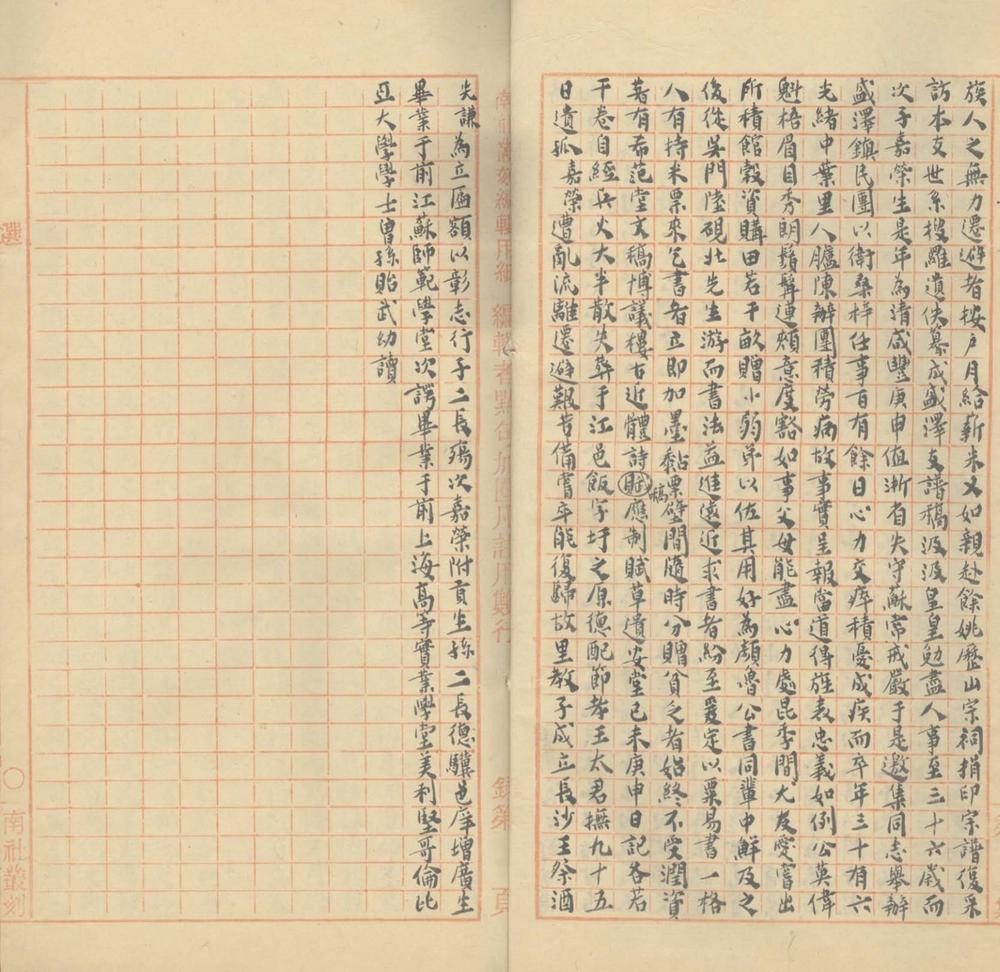 族人之無力遷避者按戶月給薪米又如親赴餘姚歷山宗祠捐印宗譜復采
訪本支世系搜羅遺佚纂成盛澤支譜稿汲汲皇皇勉盡人事至三十六歲而
次子嘉榮生是年為清咸豐庚申值淅省失守蘇常戒嚴于是邀集同志舉辦
盛澤鎮民團以衛桑梓任事百有餘日心力交瘁積憂成疾而卒年三十有六
光緒中葉里人臚陳辦團積勞病故事實呈報當道得旌表忠義如例公英偉
魁梧眉目秀朗鬚髯連頰意度豁如事父母能盡心力處昆季間尤友愛嘗出
所積館穀資購田若干畝贈小弱弟以佐其用好為顏魯公書同輩中鮮及之
後從吳門陸硯北先生游而書法益進遠近求書者紛至爰定以粟易書一格
人有持米票來乞書者立即加墨黏票壁間隨時分贈貧乏者始終不受潤資
著有希范堂文稿博議樓古近體詩賦稿應制賦草遺安堂己未庚申日記各若
干卷自經兵火大半散失葬于江邑飯字圩之原德配節孝王太君撫九十五
日遺孤嘉榮遭亂流離遷避艱苦備嘗卒能復歸故里教子成立長沙王祭酒
先謙為立匾額以彰志行子二長殤次嘉榮附貢生孫二長德驥邑庠增廣生
畢業于前江蘇師範學堂次諤畢業于前上海高等實業學堂美利堅哥倫比
亞大學學士曾孫貽武幼讀
選
○南社叢刻